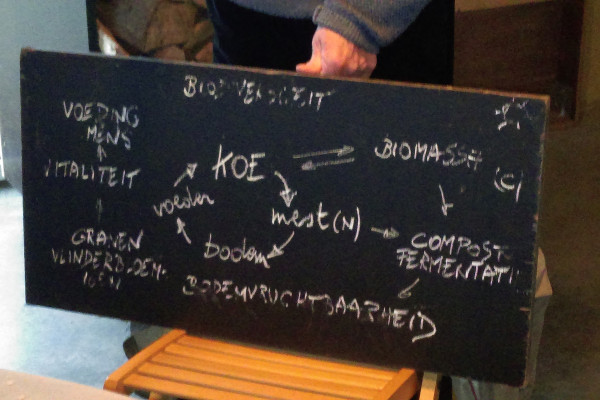 BIODIVERSITEIT
VOEDING
MENS
VITALITEIT
GRANEN
VLINDERBLOEM-
KOE
voeder
mest(N)
bodem
BIOMASSA
(C)
COMPOST
FERMENTATI
BODEMVRUCHTBAARHEID